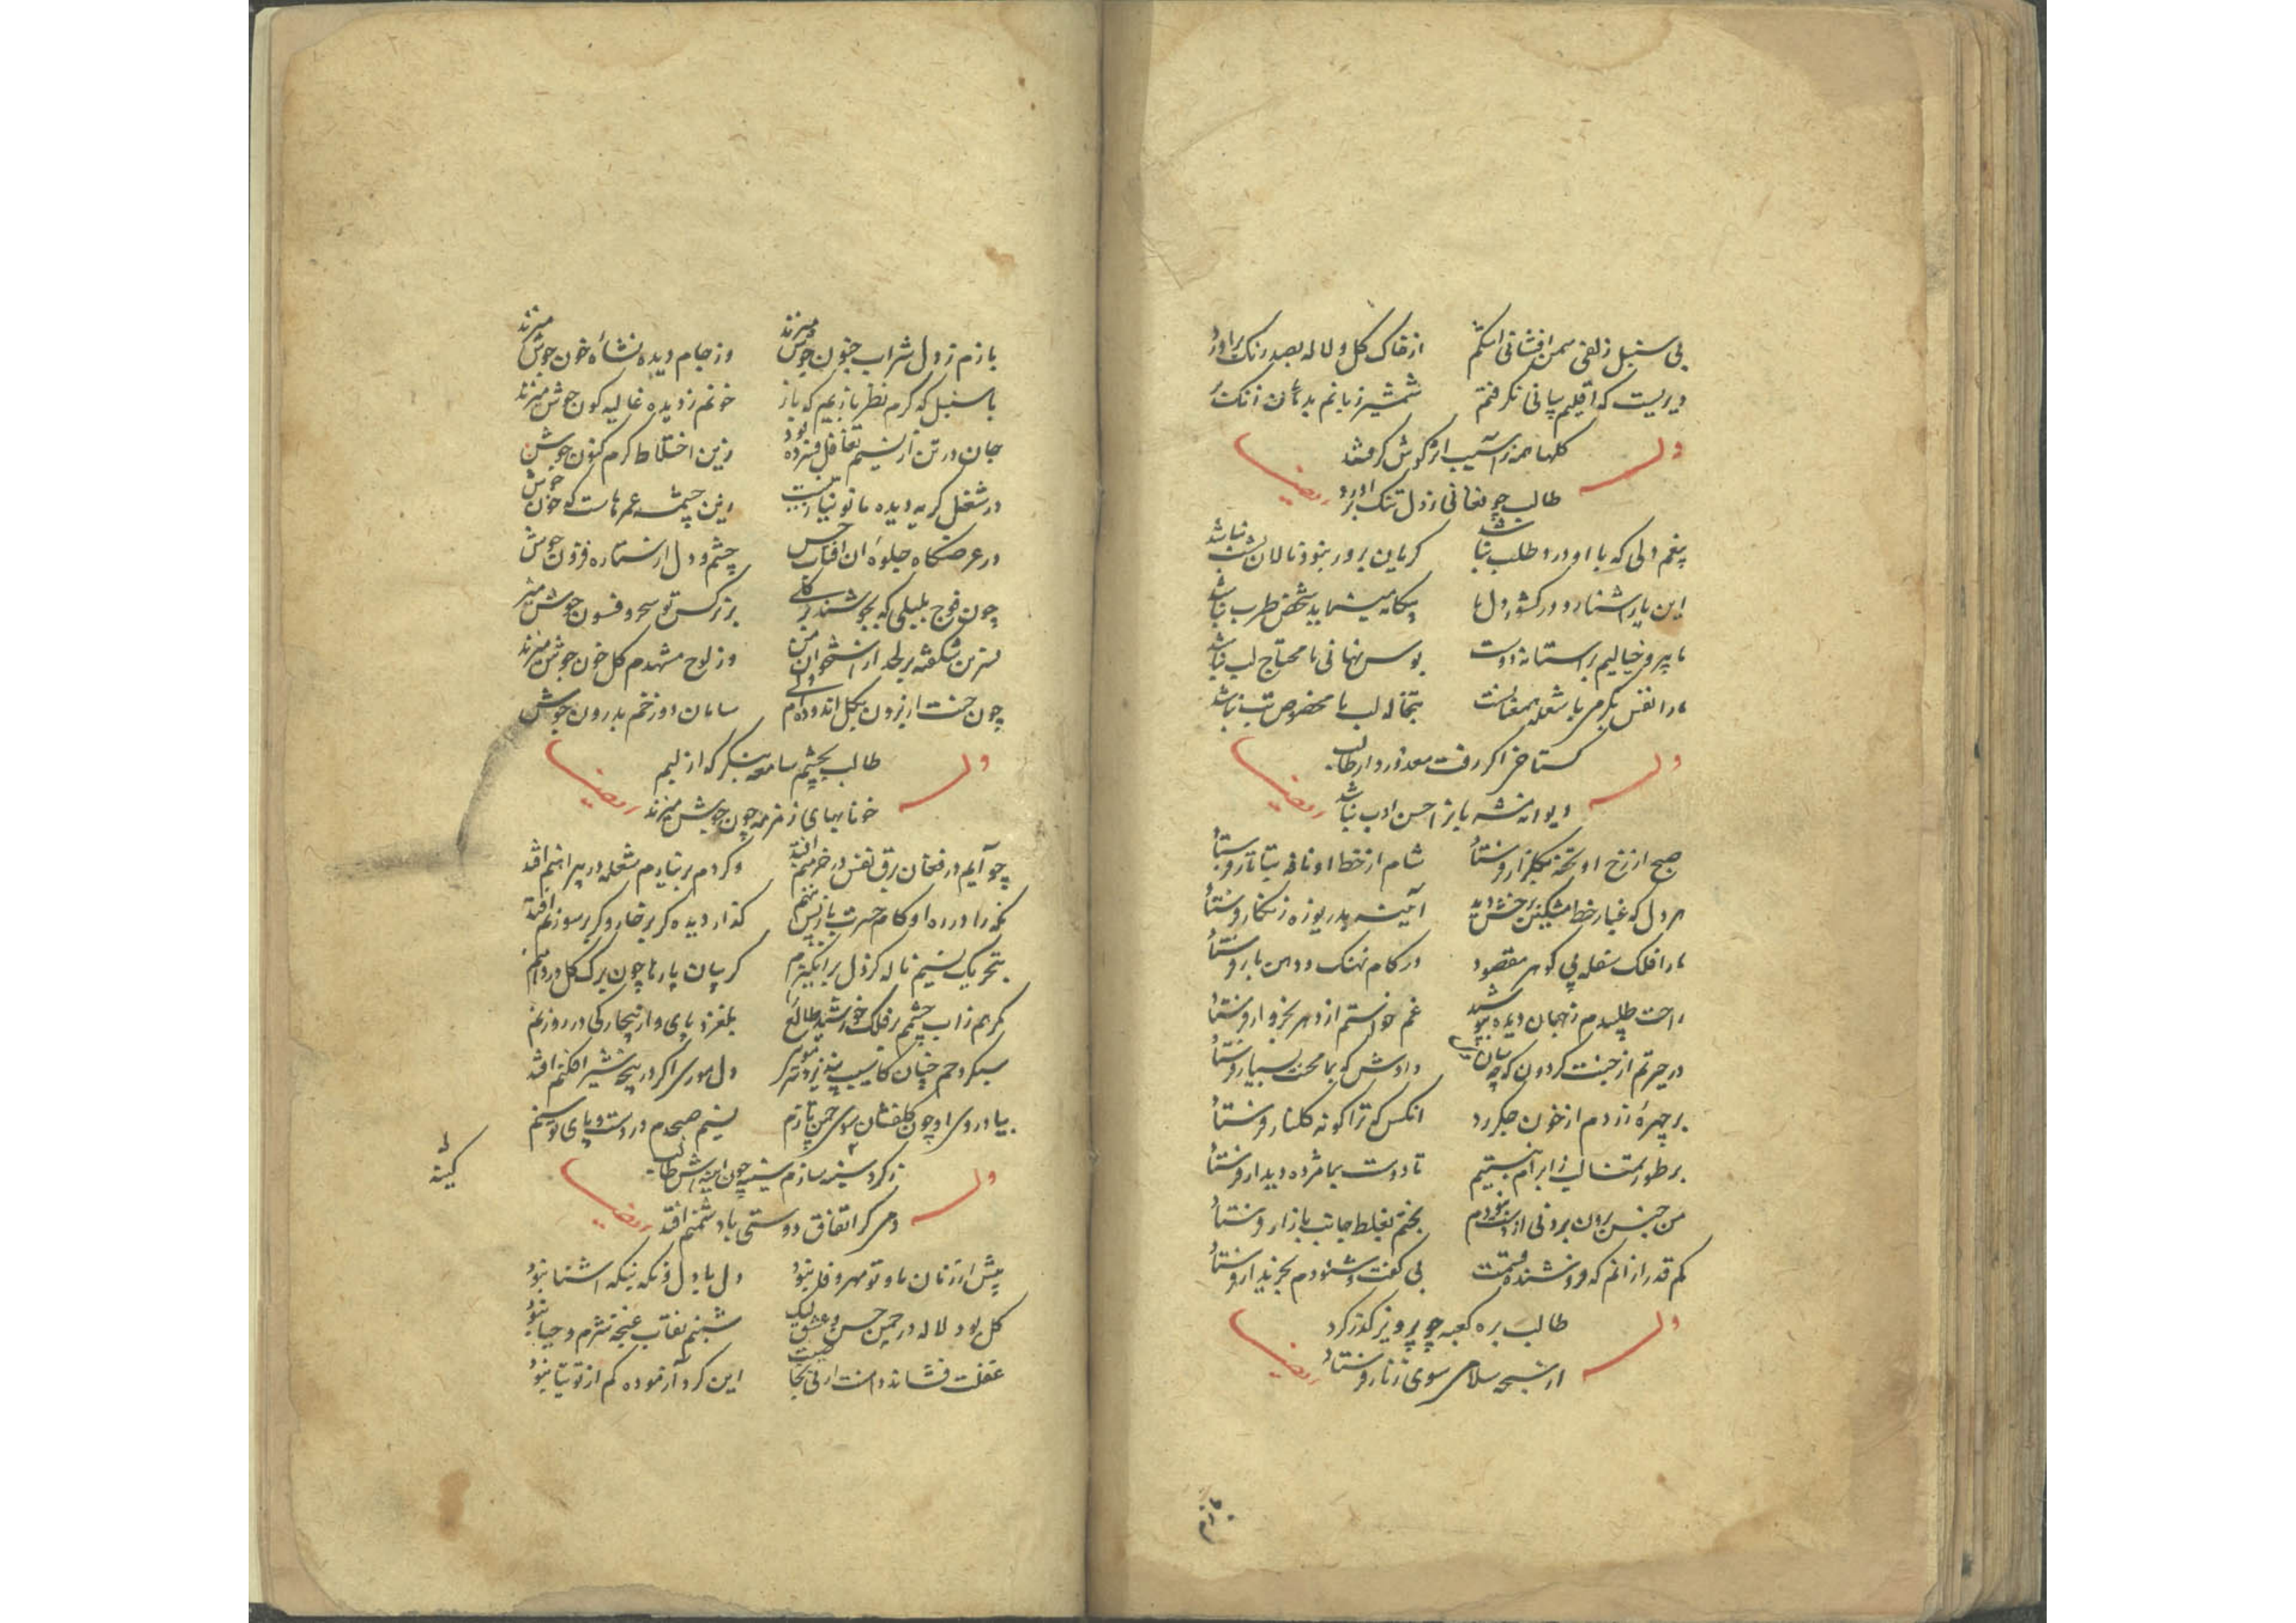 بی سنبل زلفی سمن افشانی اشکم از خاک گل و لاله بصد رنگ برآورد
دیریست که اقلیم بیانی نکرفتم شمشیر زبانم بدهان زنک
ولــه کلها همه را سیب از کوش کر شد
طالب چو فغانی ز دل تنک برآورد ایضا
بیغم دلی که با او درد طلب نباشد کریان برور نبود نالان نشب نباشد
این یار اشنا رو در کشور دل ما بیکانه مینماید شخص طرب نباشد
ما پیرو خیالیم بر استانه دوست بوس نهانی ما محتاج لب نباشد
ما را نفس بکرمی با شعله همعنانست تبخاله لب ما مخصوص تب نباشد
ولــه کستاخ اگر رفت معذور دار طالب
دیوانه منشه با احسن ادب نباشد ایضا
صبح از رخ او تحفه بکلزار فرستاد شام از خط او نافه بتاتار فرستاد
هر دل که غبار خط مشکین رخش دید آیینه بدریوزه زنکار فرستاد
ما را فلک سفله پی کوهر مقصود در کام نهنک و دهن مار فرستاد
راحت طلبیدم ز جهان دیده غم خواستم از دهر بخروار فرستاد
در حیرتم از جنبت کردون که چه دادش که بما محنت بسیار فرستاد
بر چهره زدم از خون جکر رد انکس که ترا کونه کلنار فرستاد
بر طور تمنا لب ز ابرام نبستیم تا دوست بما مژده دیدار فرستاد
من جنس برون بردنی از دست نبودم بختم بغلط جانب بازار فرستاد
کم قدر از انم که فروشنده قسمت بی کفت و شنودم بخریدار فرستاد
ولــه طالب بره کعبه چو پرویز کذر کرد
از سبحه سلامی سوی زنار فرستاد ایضا
بازم
بازم ز دل شراب جنون جوش میزند وز جام دیده نشاه خون جوش میزند
با سنبل که کرم نظر بازیم که باز خونم ز دیده غالیه کون جوش میزند
جان در تن از نسیم تغافل فسرده بود زین اختلاط کرم کنون جوش
در شغل کریه دیده ما نو نیاز نیست این چشمه عمرهاست که خون جوش
در عرصکاه جلوه ان افتاب حسن چشم و دل از ستاره فزون جوش
چون فوج بلبلی که بجوشند بر کلی بر نرکس تو سحر و فسون جوش میزند
نسترن شکفته بر لحد از استخوان من وز لوح مشهدم کل خون جوش میزند
چون جنت از برون بکل اندوده‌ام ولی سامان دوزخم بدرون جوش
ولــه طالب بچشم سامعه بنکر که از لبم
خونابهای زمزمه چون جوش میزند ایضا
چو آیم در فغان برق نفس در خرمنم افتد و کر دم بر نیارم شعله در پیراهنم افتد
نکه را در ره او کام حسرت باز پس کذار دیده کر بر خار و کر بر سوزنم افتد
بتحریک نسیم ناله کز دل بر انکیزم کریبان پارها چون برک کل در دامنم
کر هم ز اب چشمم بر فلک خورشید طالع بلغزد پای و از
سبکروحم چنان کاسیب نپذیرد دل موری اکر در پنجه شیر افکنم افتد
بیاد روی او چون کلفشان سوی چمن تازم نسیم صبحدم در دست و پای توسنم
ولــه ز کرد سینه سازم سینه چون ایینه اش طالب
دمی کر اتفاق دوستی با دشمنم افتد ایضا
کینه
پیش از زمان ما و تو مهر و وفا نبود دل با دل و نکه بنکه اشنا نبود
کل بود لاله در چمن حسن و عشق لیک شبنم نقاب غنچه شرم و حیا نبود
غفلت فشاند دامنت از نی بجا این کرد آزموده کم از توتیا نبود